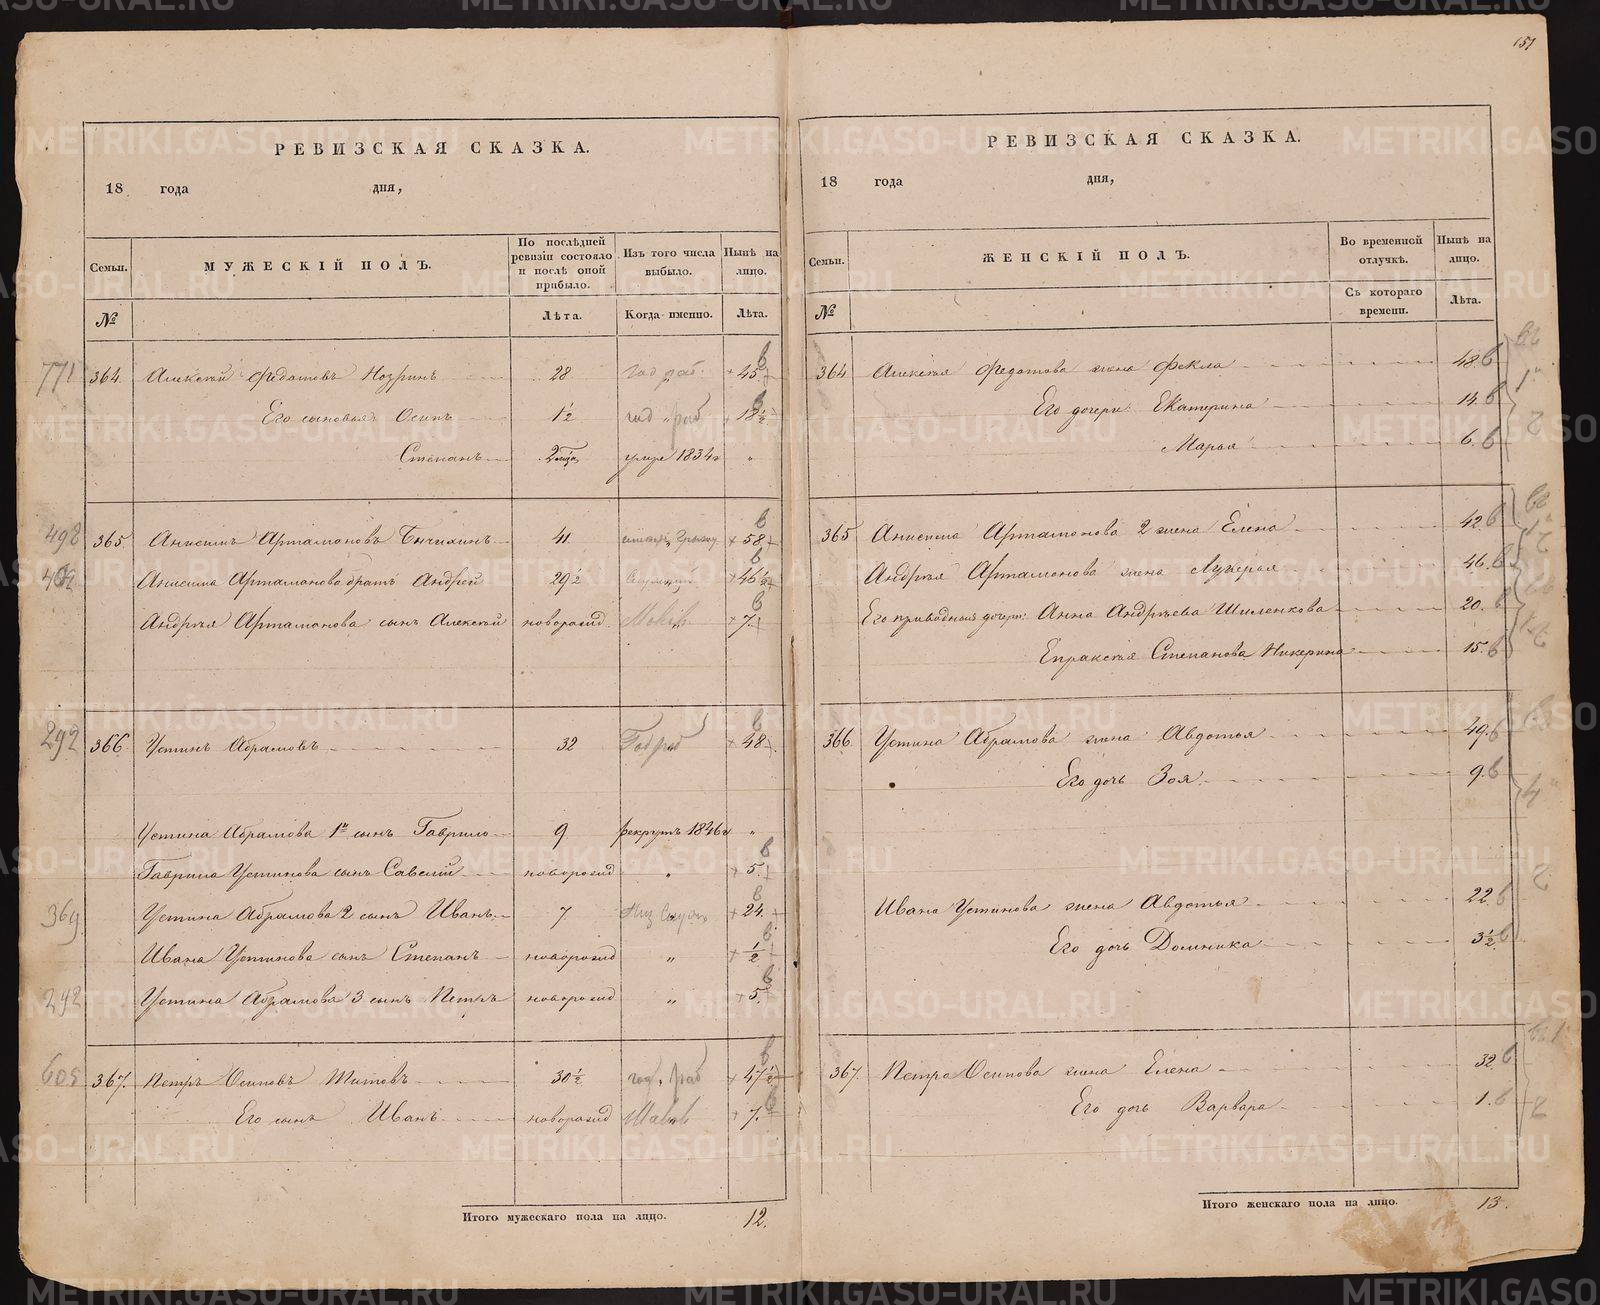 151
РЕВИЗСКАЯ СКАЗКА.
18 года дня,
Семьи. МУЖЕСКІЙ ПОЛЪ. По послѣдней ревизіи состояло и послѣ оной прибыло. Изъ того числа выбыло. Нынѣ на лицо.
№ Лѣта. Когда именно. Лѣта.
771 364. Алексѣй Федотовъ 28 45
Его сыновья: Осипъ 1½ 18½
Степанъ умре 1834 "
492 365. Анисимъ Артамоновъ 41 58
Анисима Артамонова братъ Андрей 29½ 46½
Андрея Артамонова сынъ Алексѣй новорожд 7.
292 366. Устинъ Абрамовъ 32 48
Устина Абрамова 1й сынъ Гаврило 9 рекрутъ 1846 "
Гаврила Устинова сынъ Савелій новорожд 5
369 Устина Абрамова 2 сынъ Иванъ 7 24.
Ивана Устинова сынъ Степанъ новорожд " ½
292 Устина Абрамова 3 сынъ Петръ новорожд " 5.
605 367. Петръ Осиповъ Титовъ 30½ 47½
Его сынъ Иванъ новорожд 7.
Итого мужескаго пола на лицо. 12.
РЕВИЗСКАЯ СКАЗКА.
18 года дня,
Семьи. ЖЕНСКІЙ ПОЛЪ. Во временной отлучкѣ. Нынѣ на лицо.
№ Съ котораго времени. Лѣта.
364 Алексѣя Федотова жена Фекла 48
Его дочери: Екатерина 14
Марья 6
365 Анисима Артамонова 2 жена Елена 42
Андрея Артамонова жена Лукерья 46
Его приводныя дочери: Анна Андреева Шиленкова 20
Епраксія Степанова 15
366. Устина Абрамова жена Авдотья 49
Его дочь Зоя 9
Ивана Устинова жена Авдотья 22
Его дочь Домника 3½
367. Петра Осипова жена Елена 32
Его дочь Варвара 1
Итого женскаго пола на лицо. 13.
METRIKI.GASO-URAL.RU